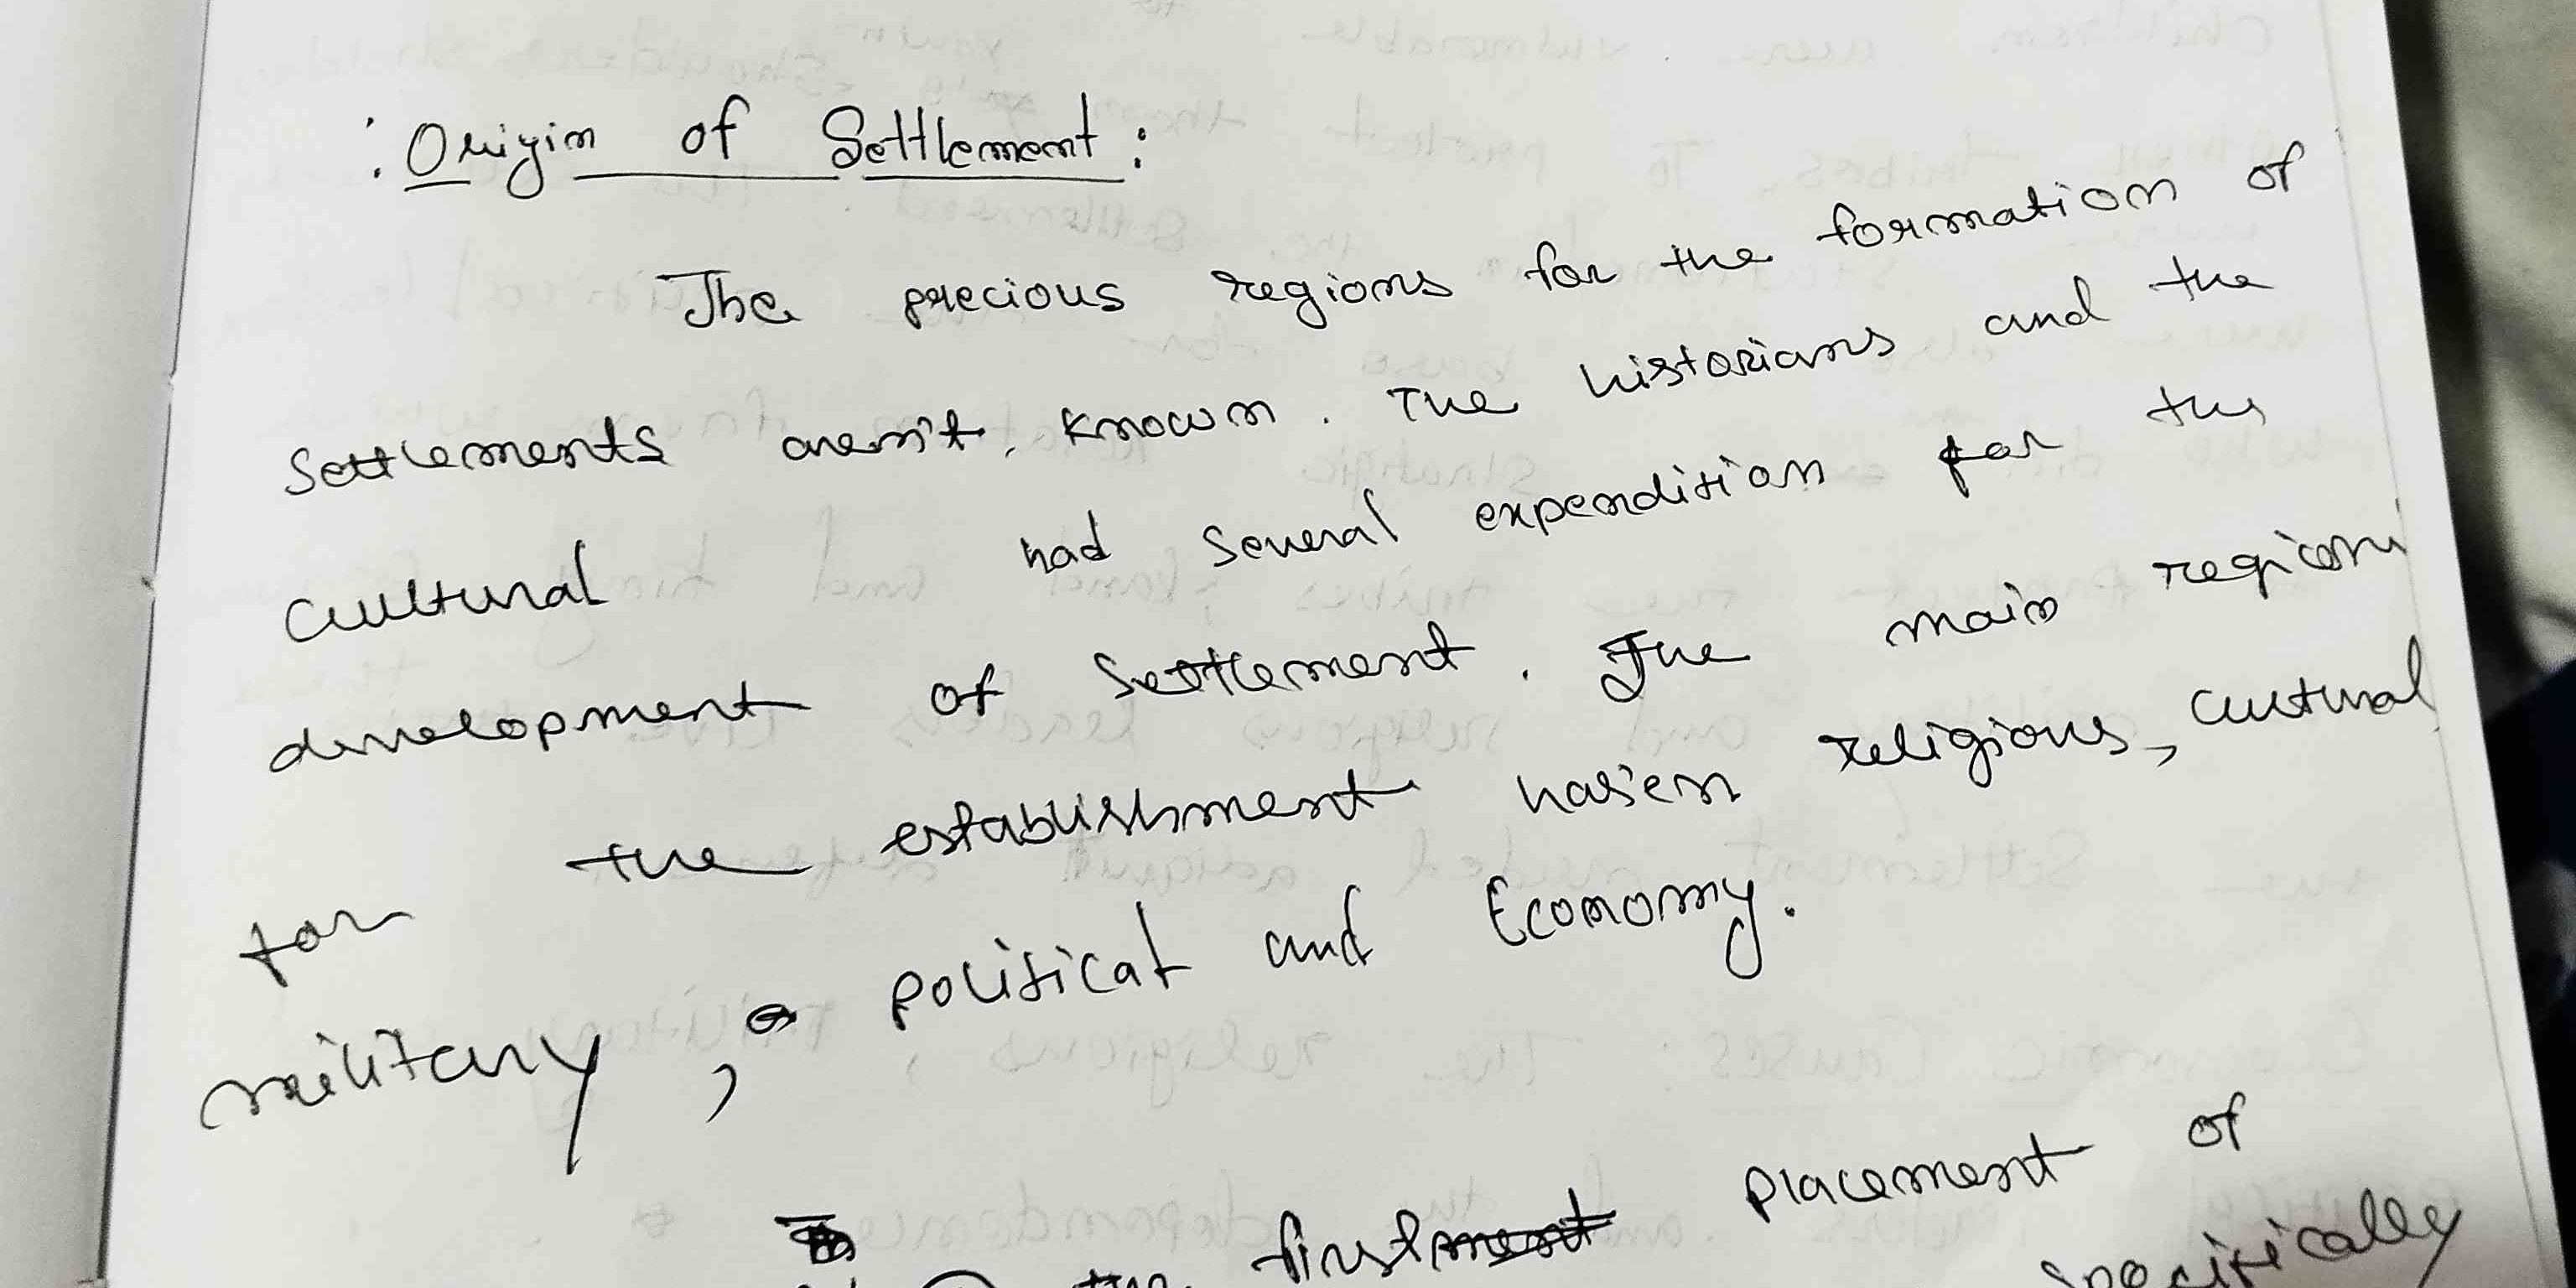 : Origin of Settlement :
The precious regions for the formation of
Settlements aren't, known. The historians and the
Cultural had several expendition for the
development of Settlement. The main regions
for the establishment has'en religious, cultural
military, political and Economy.
the first placement of
specifically